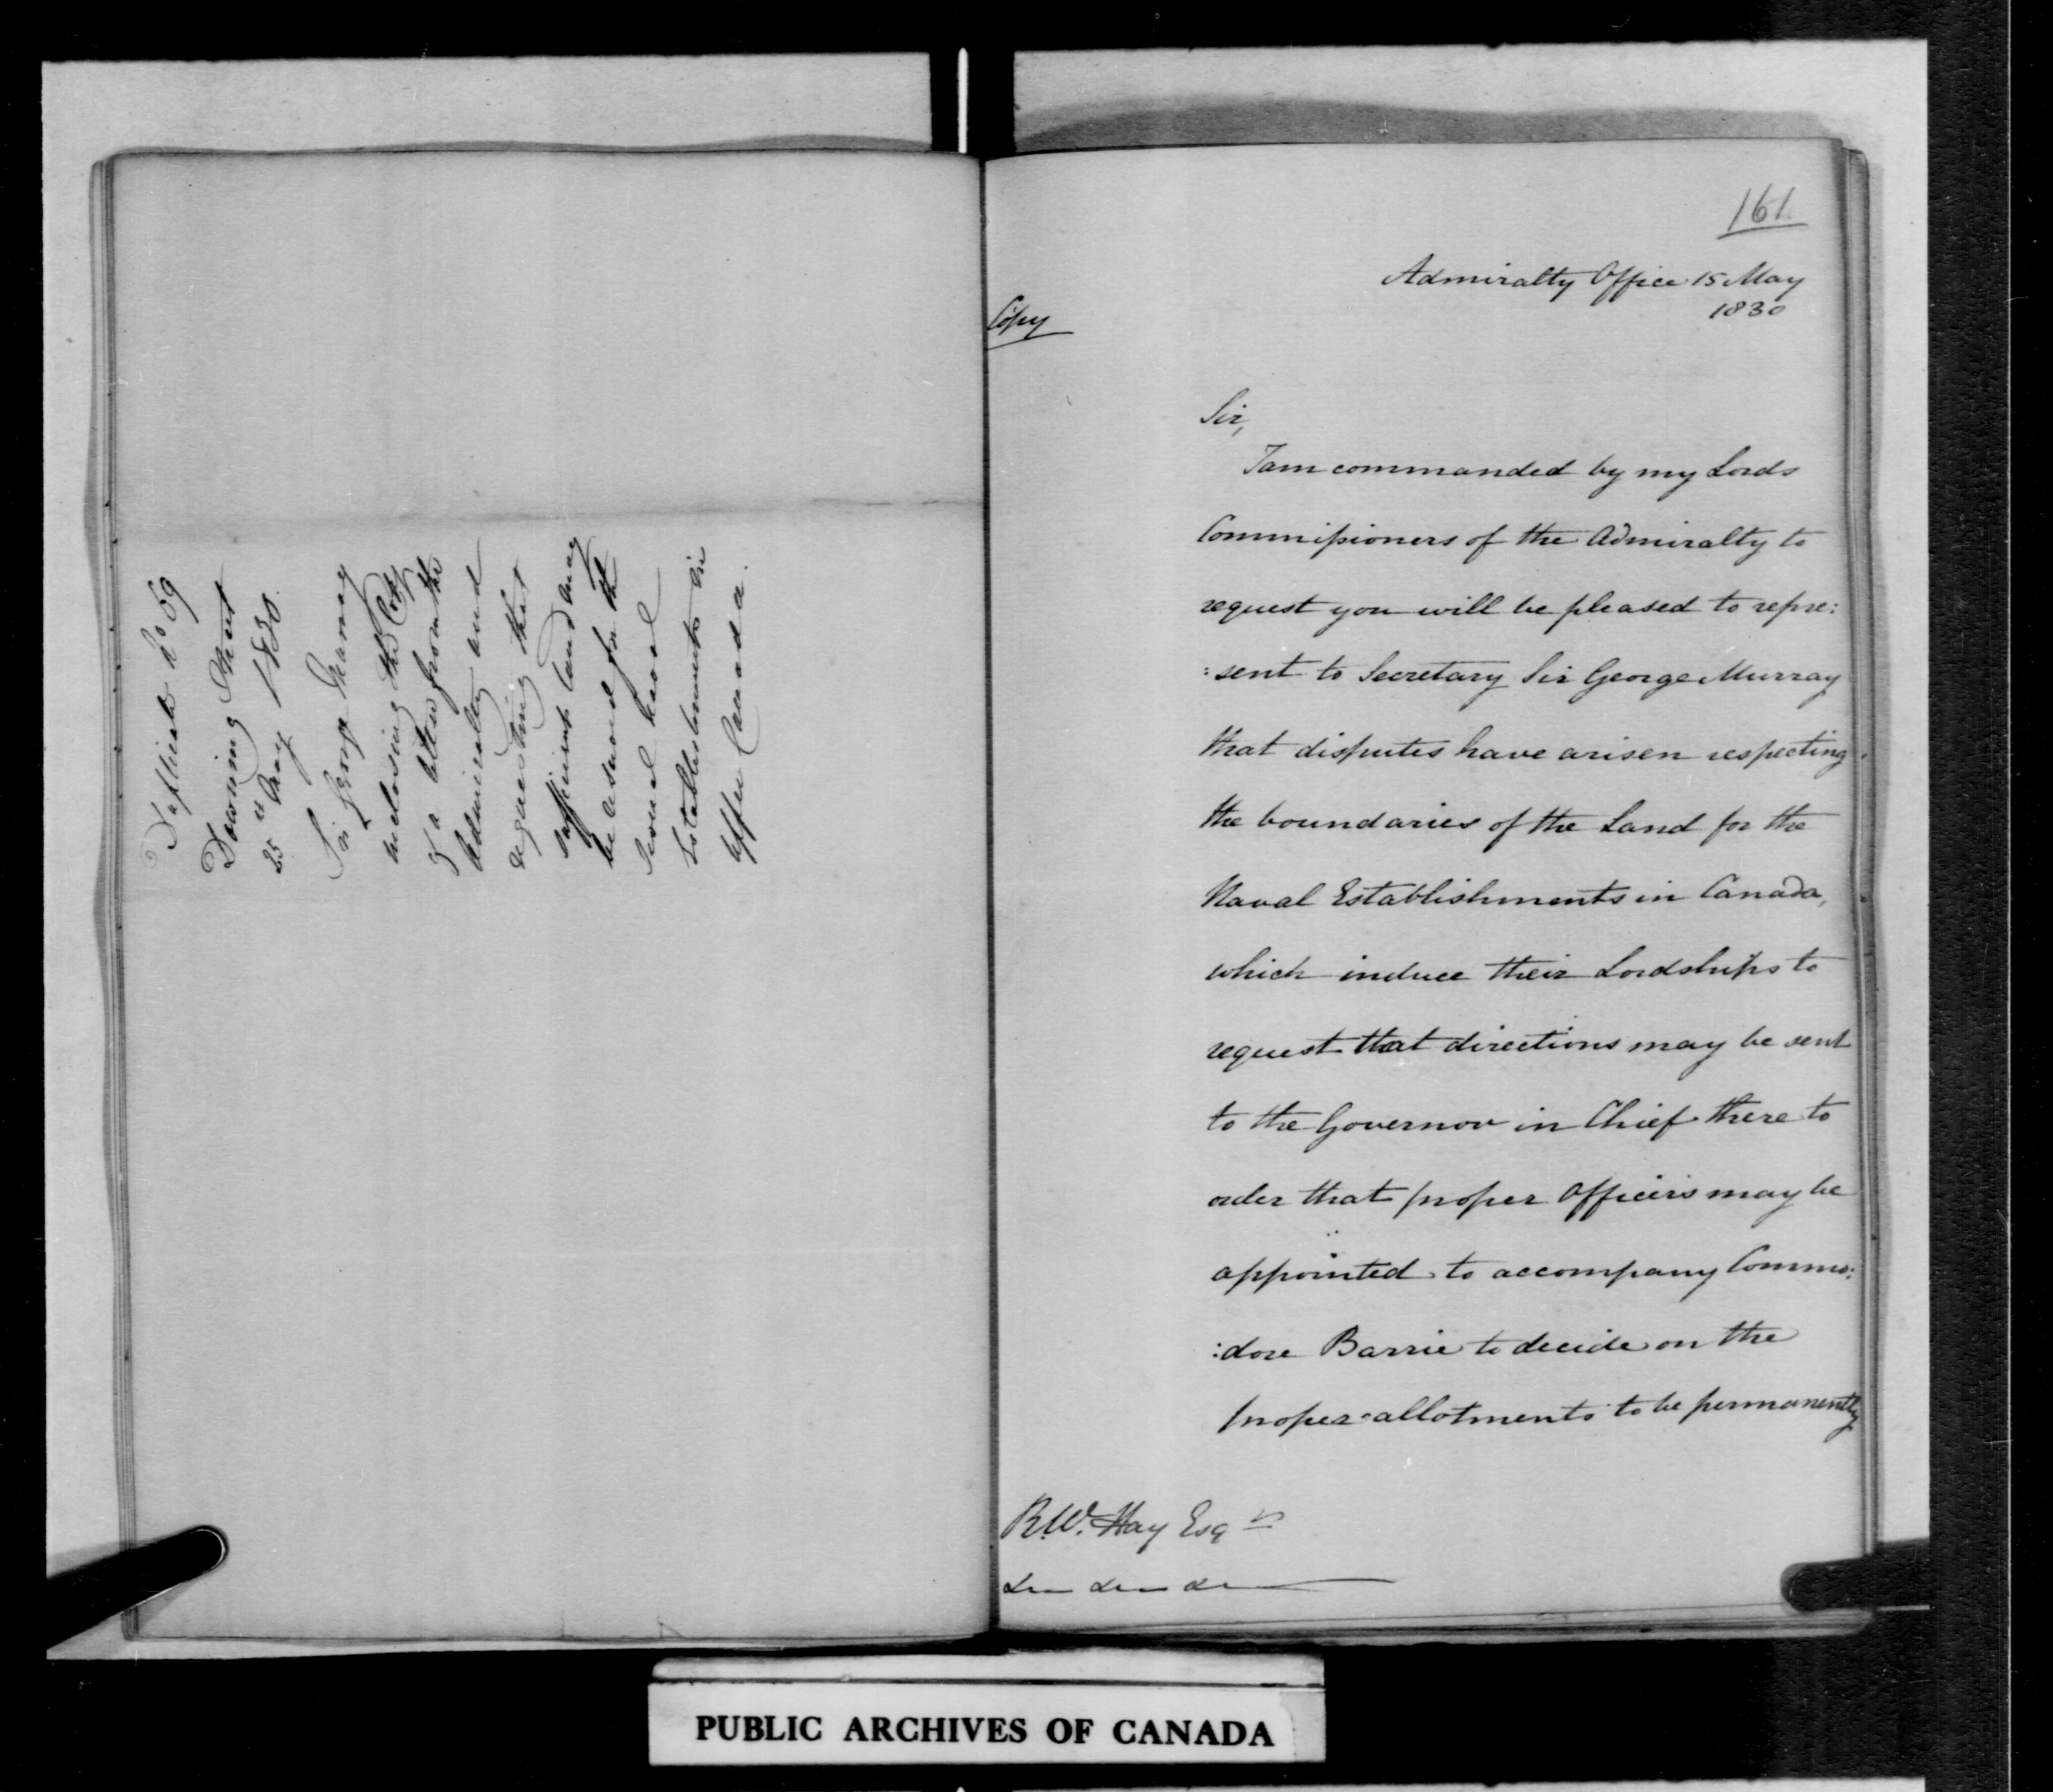 Duplicate No 69
Downing Street
25th May 1830.
Sir George Murray
inclosing the Copy
of a letter from the
Admiralty and
requesting that
sufficient Land may
be assured for the
several naval
Establishments in
Upper Canada.
161.
Admiralty Office 15 May
1830
Copy
Sir,
I am commanded by my Lords
Commissioners of the Admiralty to
request you will be pleased to repre:
:sent to Secretary Sir George Murray
that disputes have arisen respecting
the boundaries of the Land for the
Naval Establishments in Canada,
which induce their Lordships to
request that directions may be sent
to the Governor in Chief there to
order that proper Officers may be
appointed to accompany Commo:
:dore Barrie to decide on the
proper allotments to be permanently
R.W. Hay Esqre
PUBLIC ARCHIVES OF CANADA